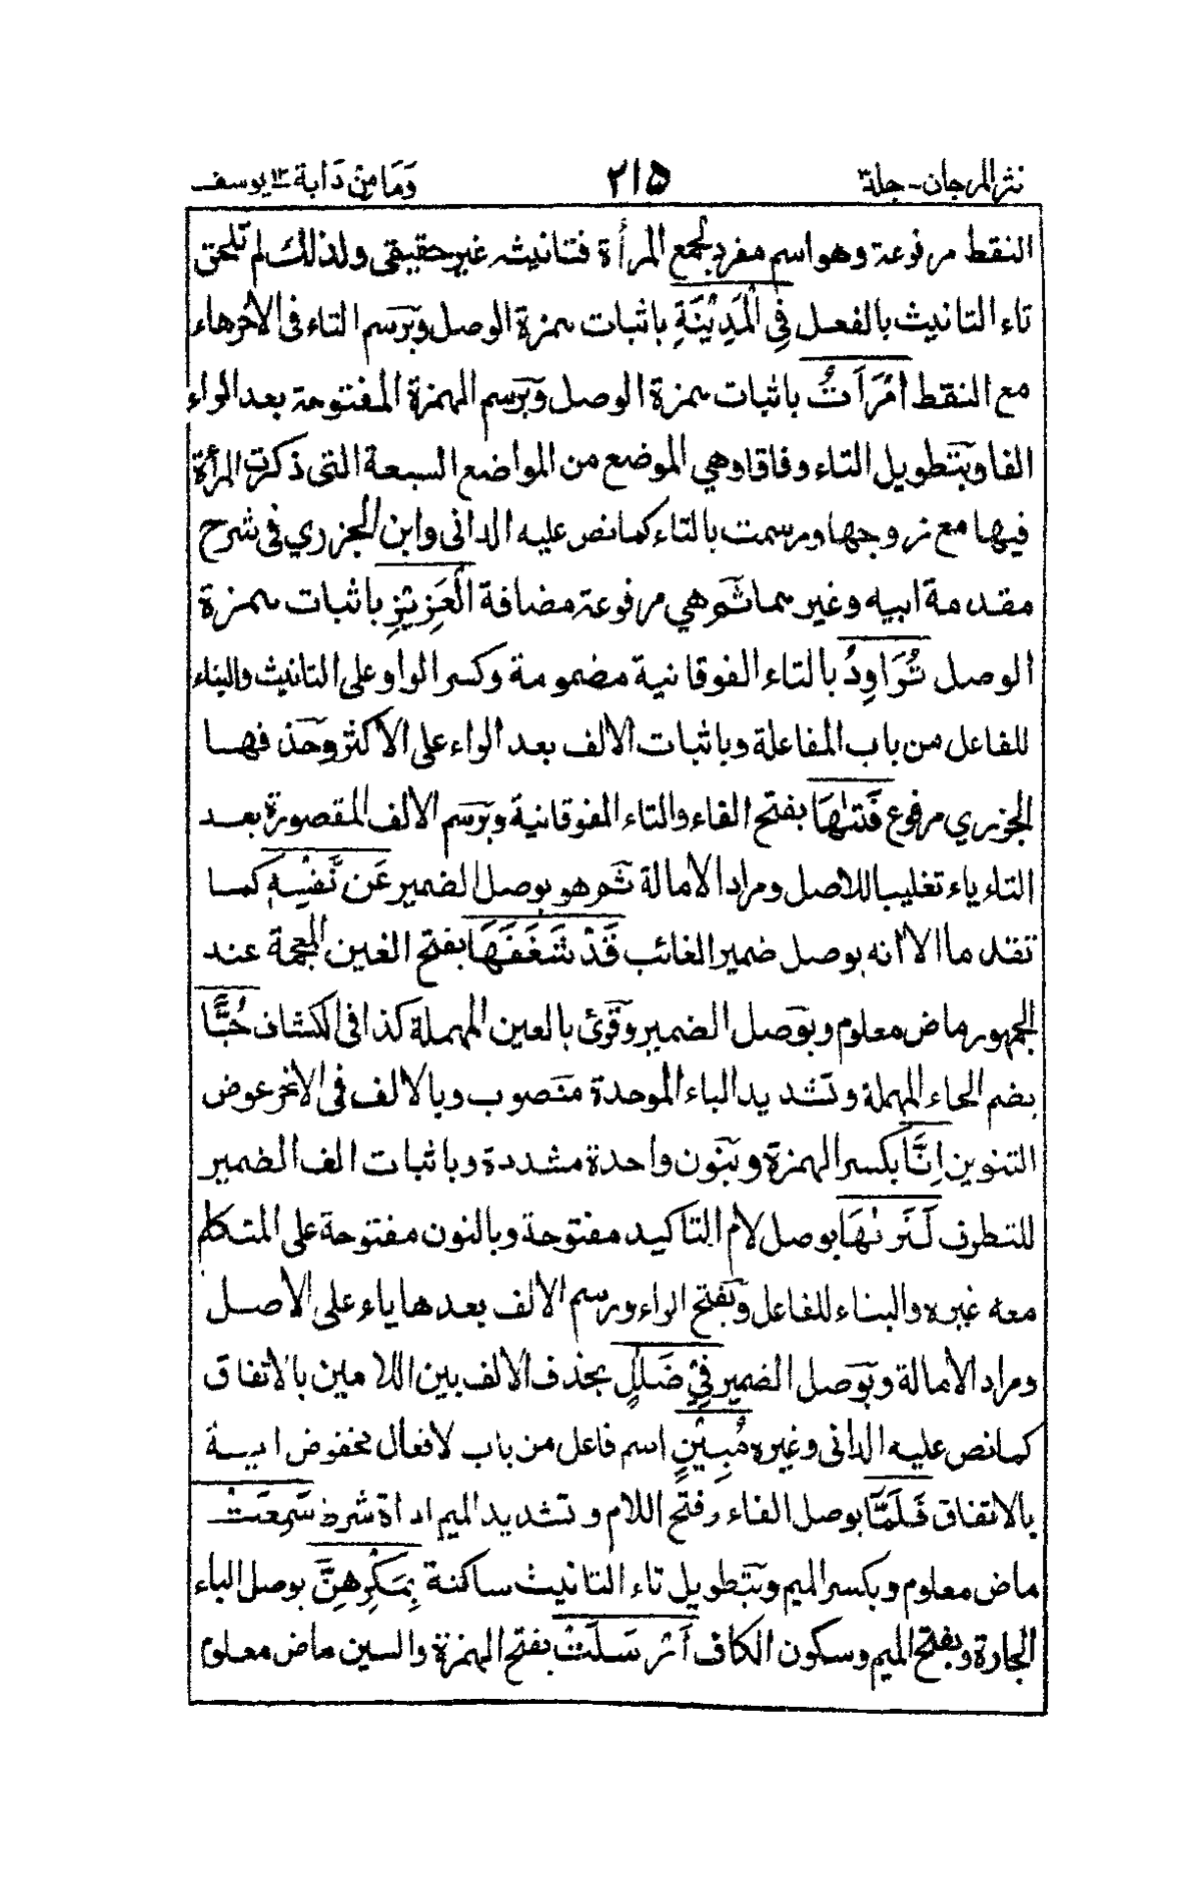 نثر المرجان - جلد٣ ٢١٥ وَمَا مِنْ دَابة ١٢ يوسف
النقط مرفوعة وهو اسم مفرد لجمع المرأة فتانيثه غير حقيقى ولذلك لم تلحق
تاء التانيث بالفعل فِى الْمَدِيْنَةِ باثبات همزة الوصل وبرسم التاء فى الاخر هاء
مع النقط امْرَاَتُ باثبات همزة الوصل وبرسم الهمزة المفتوحة بعد الراء
الفا وبتطويل التاء وفاقا وهي الموضع من المواضع السبعة التى ذكرت المرأة
فيها مع زوجها ورسمت بالتاء كما نص عليه الدانى وابن الجزري فى شرح
مقدمة ابيه وغيرهما ثم هي مرفوعة مضافة الْعَزِيْزِ باثبات همزة
الوصل تُرَاوِدُ بالتاء الفوقانية مضمومة وكسر الواو على التانيث والبناء
للفاعل من باب المفاعلة وباثبات الالف بعد الراء على الاكثر وحذفها
الجزري مرفوع فَتٰىهَا بفتح الفاء والتاء الفوقانية وبرسم الالف المقصورة بعد
التاء ياء تغليبا للاصل ومراد الامالة ثم هو بوصل الضمير عَن نَّفْسِهٖ كما
تقدم الا انه بوصل ضمير الغائب قَدْ شَغَفَهَا بفتح الغين المعجمة عند
الجمهور ماض معلوم وبوصل الضمير وقرئ بالعين المهملة كذا فى الكشاف حُبًّا
بضم الحاء المهملة وتشديد الباء الموحدة منصوب وبالالف فى الاخر عوض
التنوين اِنَّا بكسر الهمزة وبنون واحدة مشددة وباثبات الف الضمير
للتطرف لَنَرٰىهَا بوصل لام التاكيد مفتوحة وبالنون مفتوحة على المتكلم
معه غيره والبناء للفاعل وبفتح الراء ورسم الالف بعدها ياء على الاصل
ومراد الامالة وبوصل الضمير فِىْ ضَلٰلٍ بحذف الالف بين اللامين بالاتفاق
كما نص عليه الدانى وغيره مُبِيْنٍ اسم فاعل من باب لافعال مخفوض اٰية
بالاتفاق فَلَمَّا بوصل الفاء وفتح اللام وتشديد الميم اداة شرط سَمِعَتْ
ماض معلوم وبكسر الميم وبتطويل تاء التانيث ساكنة بِمَكْرِهِنَّ بوصل الباء
الجارة وبفتح الميم وسكون الكاف اَرْسَلَتْ بفتح الهمزة والسين ماض معلوم